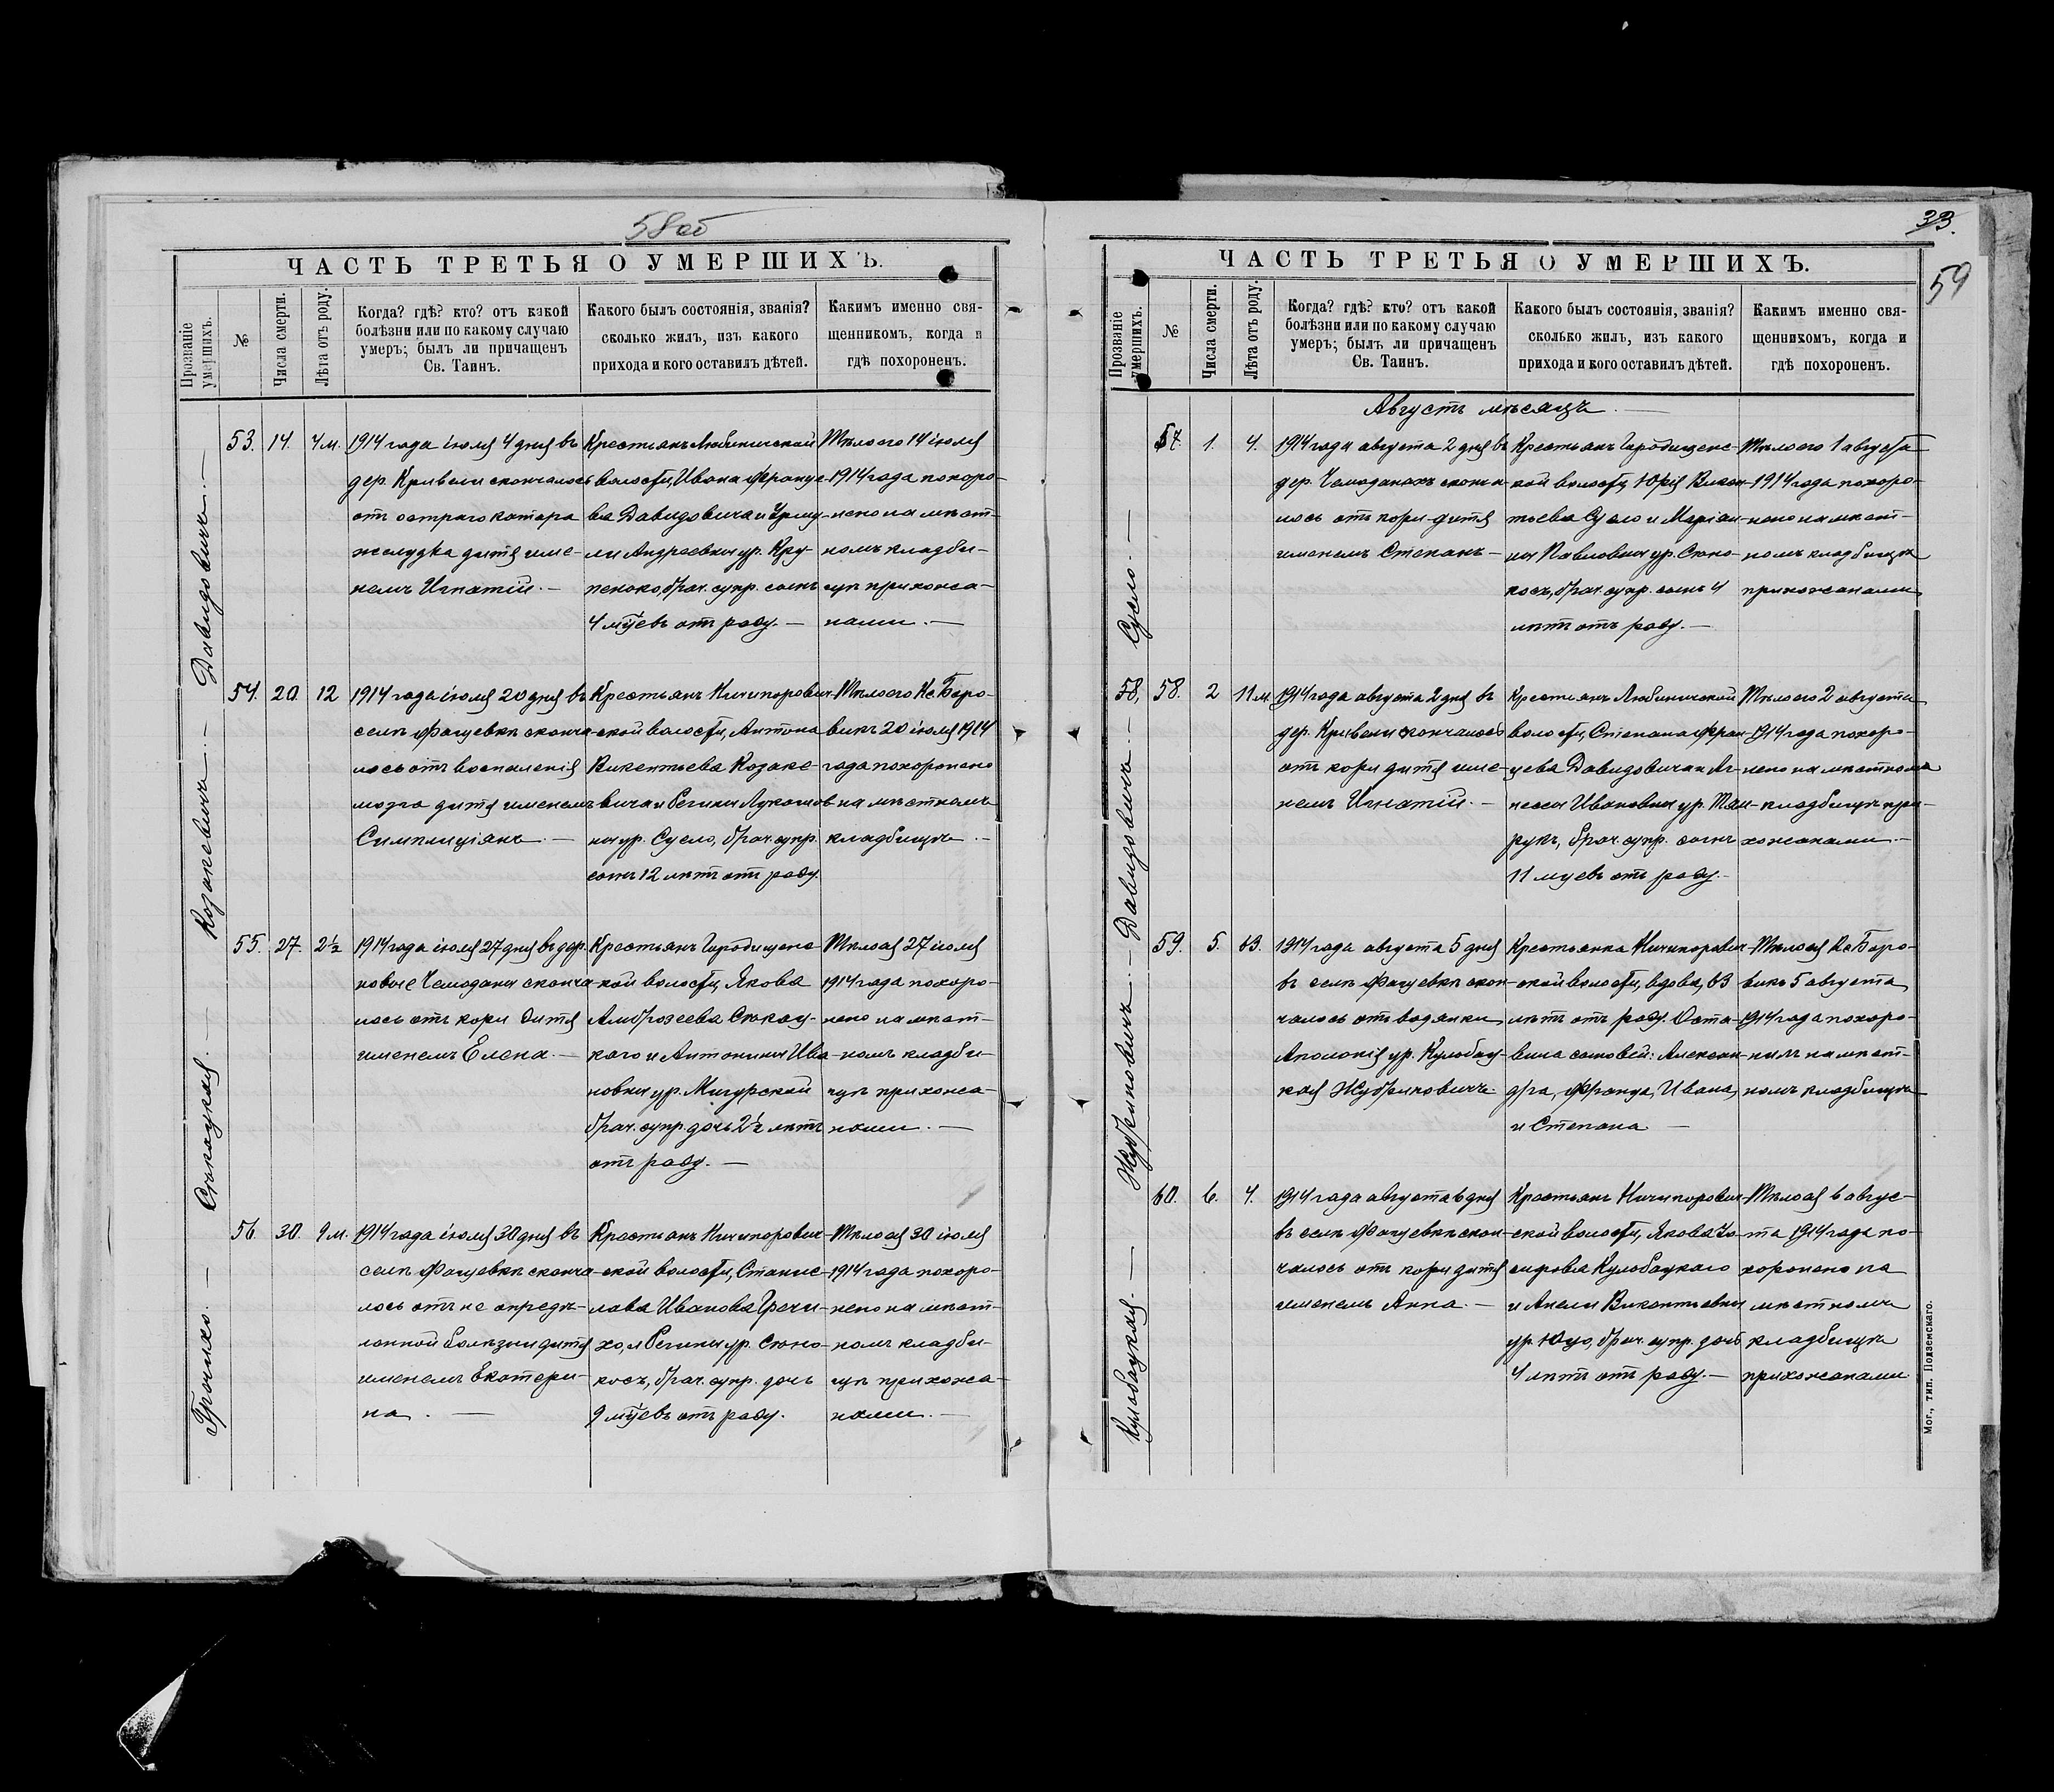 58 об
ЧАСТЬ ТРЕТЬЯ О УМЕРШИХЪ.
Прозваніе умершихъ.
№
Числа смерти.
Лѣта отъ роду.
Когда? гдѣ? кто? отъ какой
болѣзни или по какому случаю
умеръ; былъ ли причащенъ
Св. Таинъ.
Какого былъ состоянія, званія?
сколько жилъ, изъ какого
прихода и кого оставилъ дѣтей.
Какимъ именно свя-
щенникомъ, когда и
гдѣ похороненъ.
Давидовичъ.—
53. 14. 4 м.
1914 года іюля 4 дня въ
дер. Кривели скончалось
отъ остраго катара
желудка дитя име-
немъ Игнатій.—
Крестьянъ Любиничской
волости, Ивана Франце-
ва Давидовича и
ли Андреевны ур. Кру-
брач. супр. сынъ
4 мцевъ отъ роду.—
Тѣло его 14 іюля
1914 года похоро-
нено на мѣст-
номъ кладби-
щѣ прихожа-
нами.—
Козакевичъ.—
54. 20. 12
1914 года іюля 20 дня въ
селѣ Фащевкѣ сконча-
лось отъ воспаленія
мозга дитя именемъ
Симплиціянъ.—
Крестьянъ Ничипорович-
ской волости, Антона
Викентьева Козаке-
вича и Регины Лукашов-
ны ур. Сусло, брач. супр.
сынъ 12 лѣтъ отъ роду.
Тѣло его Кс. Боро-
викъ 20 іюля 1914
года похоронено
на мѣстномъ
кладбищѣ.—
Стокоцкая.—
55. 27. 2½
1914 года іюля 27 дня въ дер.
новые Чемоданы сконча-
лось отъ кори дитя
именемъ Елена.—
Крестьянъ Городищенс-
кой волости, Якова
Амброзеева Стокоц-
каго и Антонины Ива-
новны ур. Мигурской
брач. супр. дочь 2½ лѣтъ
отъ роду.—
Тѣло ея 27 іюля
1914 года похоро-
нено на мѣст-
номъ кладби-
щѣ прихожа-
нами.—
Гречихо.—
56. 30. 9 м.
1914 года іюля 30 дня въ
селѣ Фащевкѣ сконча-
лось отъ не опредѣ-
ленной болѣзни дитя
именемъ Екатери-
на.—
Крестьянъ Ничипорович-
ской волости, Станис-
лава Иванова Гречи-
хо, и Регины ур. Сюно-
косъ, брач. супр. дочь
9 мцевъ отъ роду.
Тѣло ея 30 іюля
1914 года похоро-
нено на мѣст-
номъ кладби-
щѣ прихожа-
нами.—
33.
59
ЧАСТЬ ТРЕТЬЯ О УМЕРШИХЪ.
Прозваніе умершихъ.
№
Числа смерти.
Лѣта отъ роду.
Когда? гдѣ? кто? отъ какой
болѣзни или по какому случаю
умеръ; былъ ли причащенъ
Св. Таинъ.
Какого былъ состоянія, званія?
сколько жилъ, изъ какого
прихода и кого оставилъ дѣтей.
Какимъ именно свя-
щенникомъ, когда и
гдѣ похороненъ.
Августъ мѣсяцъ.—
Сусло.—
57. 1. 4.
1914 года августа 2 дня въ
дер. Чемоданахъ сконча-
лось отъ кори дитя
именемъ Степанъ—
Крестьянъ Городищенс-
кой волости, Юрія Викен-
тьева Сусло и Маріан-
ны Павловны ур. Сюно-
косъ, брач. супр. сынъ 4
лѣтъ отъ роду.—
Тѣло его 1 августа
1914 года похоро-
нено на мѣст-
номъ кладбищѣ
прихожанами
Давидовичъ.—
58, 58. 2 11 м.
1914 года августа 2 дня въ
дер. Кривели скончалось
отъ кори дитя име-
немъ Игнатій.—
Крестьянъ Любиничской
волости, Степана Фран-
цева Давидовича и Аг-
нессы Ивановны ур.
брач. супр. сынъ
11 мцевъ отъ роду.—
Тѣло его 2 августа
1914 года похоро-
нено на мѣстномъ
кладбищѣ при-
хожанами.—
Жубриновичъ.—
59. 5. 63.
1914 года августа 5 дня
въ селѣ Фащевкѣ скон-
чалось отъ водянки
Аполонія ур. Кулобац-
кая Жубриновичъ.
Крестьянка Ничипорович-
ской волости, вдова, 63
лѣтъ отъ роду. Оста-
вила сыновей: Алексан-
дра, Франца, Ивана,
и Степана.—
Тѣло ея Кс. Боро-
викъ 5 августа
1914 года похоро-
нилъ на мѣст-
номъ кладбищѣ
Кулобацкая.—
60. 6. 4.
1914 года августа 6 дня
въ селѣ Фащевкѣ скон-
чалось отъ кори дитя
именемъ Анна.—
Крестьянъ Ничипорович-
ской волости, Якова Іо-
сифова Кулобацкаго
и Анели Викентьевны
ур. Юцо, брач. супр. дочь
4 лѣтъ отъ роду.—
Тѣло ея 6 авгус-
та 1914 года по-
хоронено на
мѣстномъ
кладбищѣ
прихожанами
Мог., тип. Подземскаго.